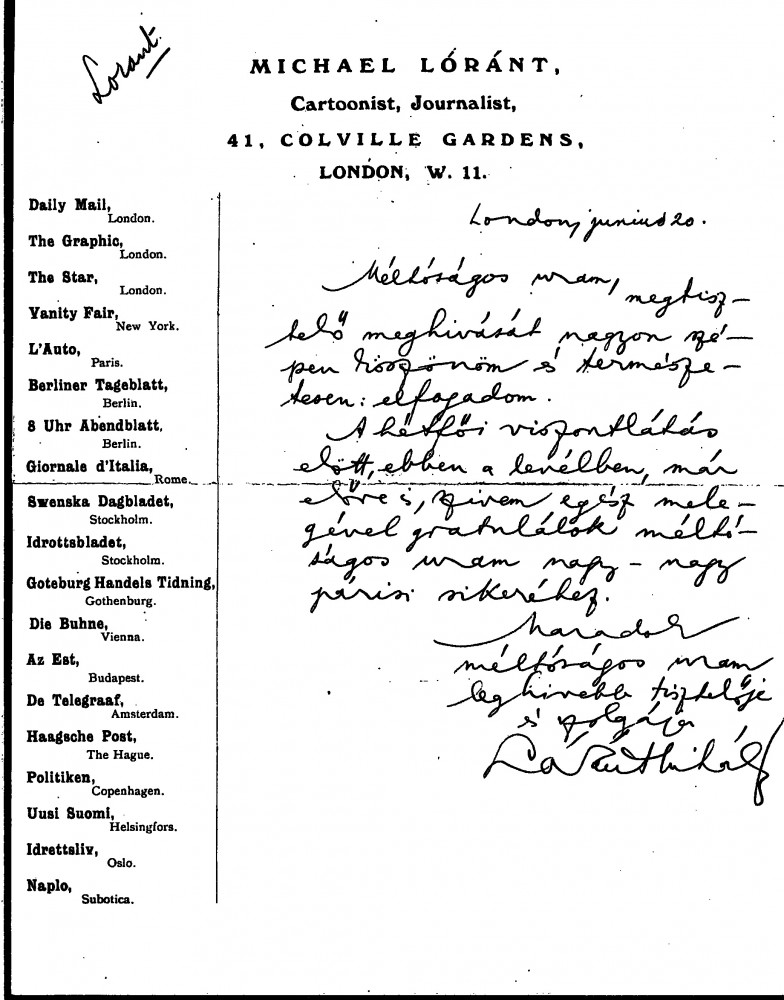 Lorant.
MICHAEL LÓRÁNT,
Cartoonist, Journalist,
41, COLVILLE GARDENS,
LONDON, W. 11.
Daily Mail,
London.
The Graphic,
London.
The Star,
London.
Vanity Fair,
New York.
L'Auto,
Paris.
Berliner Tageblatt,
Berlin.
8 Uhr Abendblatt,
Berlin.
Giornale d'Italia,
Rome.
Swenska Dagbladet,
Stockholm.
Idrottsbladet,
Stockholm.
Goteburg Handels Tidning,
Gothenburg.
Die Buhne,
Vienna.
Az Est,
Budapest.
De Telegraaf,
Amsterdam.
Haagsche Post,
The Hague.
Politiken,
Copenhagen.
Uusi Suomi,
Helsingfors.
Idrettsliv,
Oslo.
Naplo,
Subotica.
London, junius 20.
Méltóságos uram, megtisz-
telő meghivását nagyon szé-
pen köszönöm és természe-
tesen: elfogadom.
A hétfői viszontlátás
előtt, ebben a levélben, már
előre is, szivem egész mele-
gével gratulálok méltó-
ságos uram nagy-nagy
párisi sikeréhez.
Maradok
méltóságos uram
leghivebb tisztelője
és szolgája
Lóránt Mihály